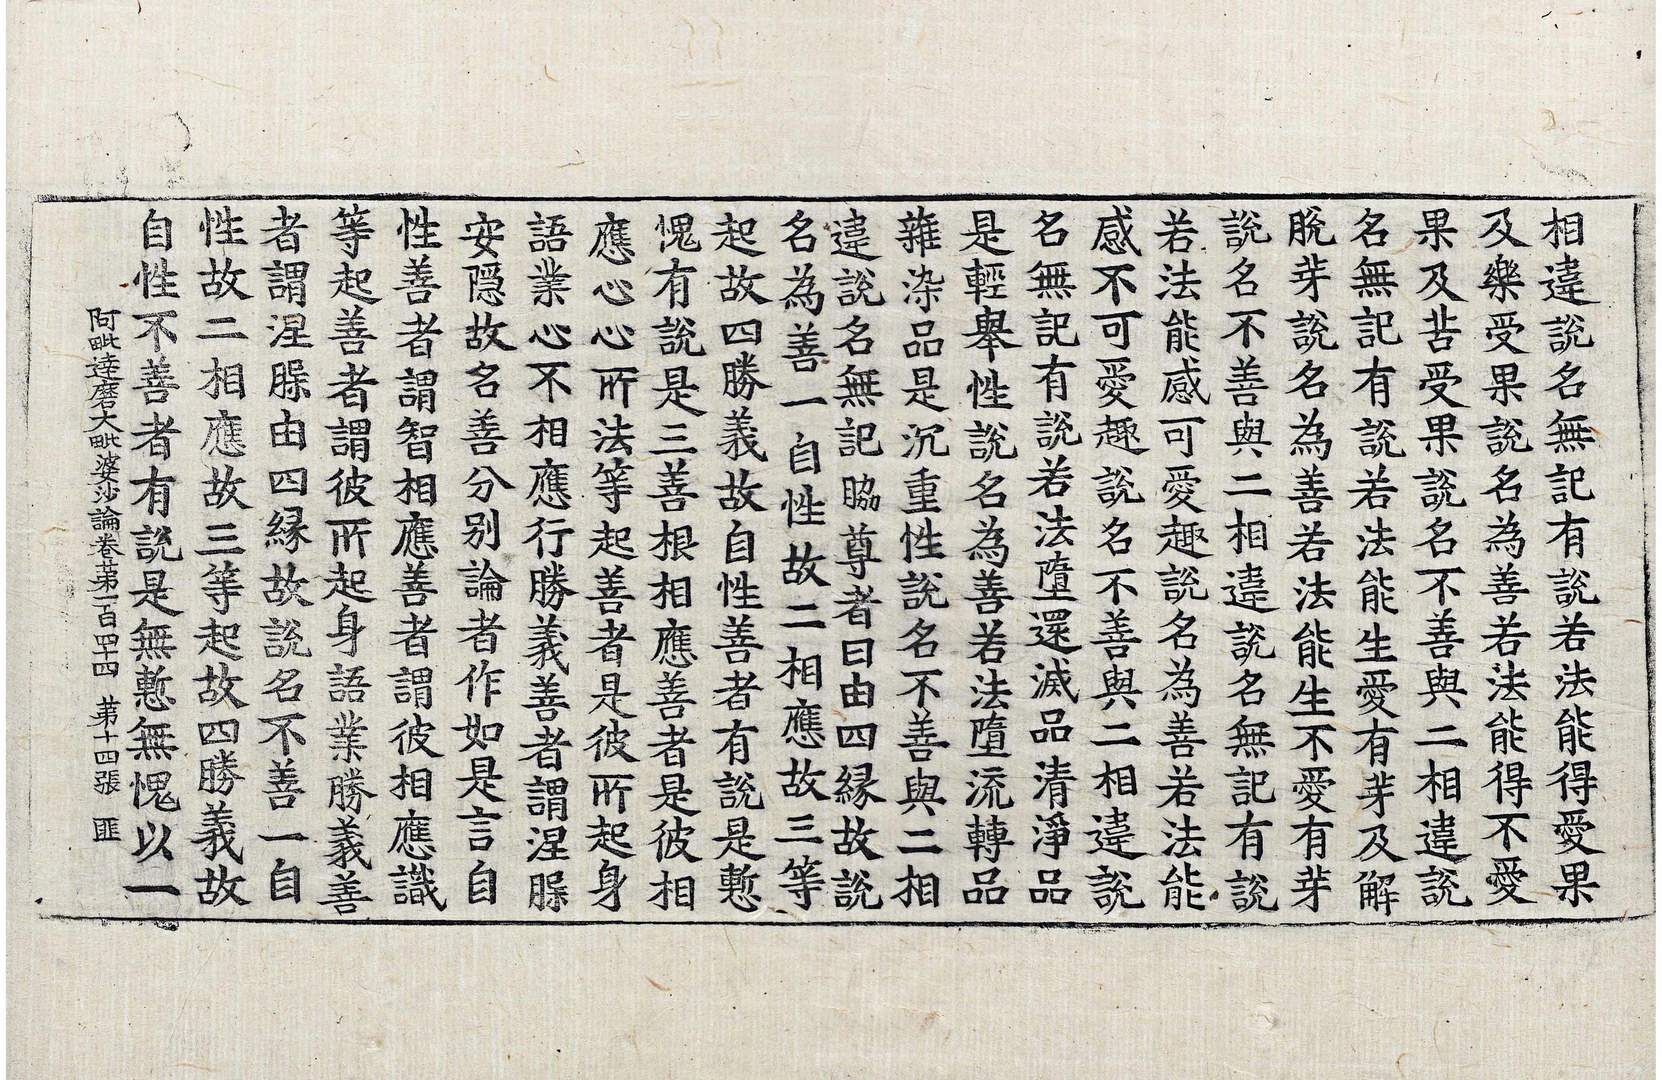 相違說名無記有說若法能得愛果
及樂受果說名為善若法能得不愛
果及苦受果說名不善與二相違說
名無記有說若法能生愛有芽及解
脫芽說名為善若法能生不愛有芽
說名不善與二相違說名無記有說
若法能感可愛趣說名為善若法能
感不可愛趣說名不善與二相違說
名無記有說若法墮還滅品清淨品
是輕舉性說名為善若法墮流轉品
雜染品是沉重性說名不善與二相
違說名無記脇尊者曰由四縁故說
名為善一自性故二相應故三等
起故四勝義故自性善者有說是慙
愧有說是三善根相應善者是彼相
應心心所法等起善者是彼所起身
語業心不相應行勝義善者謂涅槃
安隱故名善分別論者作如是言自
性善者謂智相應善者謂彼相應識
等起善者謂彼所起身語業勝義善
者謂涅槃由四縁故說名不善一自
性故二相應故三等起故四勝義故
自性不善者有說是無慙無愧以一
阿毗達磨大毗婆沙論卷第一百四十四　第十四張　匪